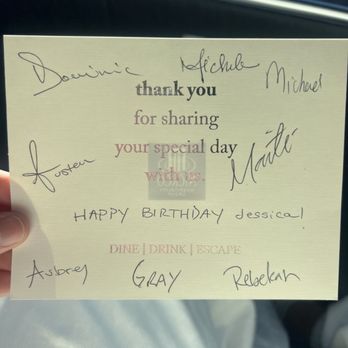 Dominic Michele Michael
thank you
for sharing
your special day
with us.
Austen
HAPPY BIRTHDAY Jessica!
DINE | DRINK | ESCAPE
Aubrey GRAY Rebekah